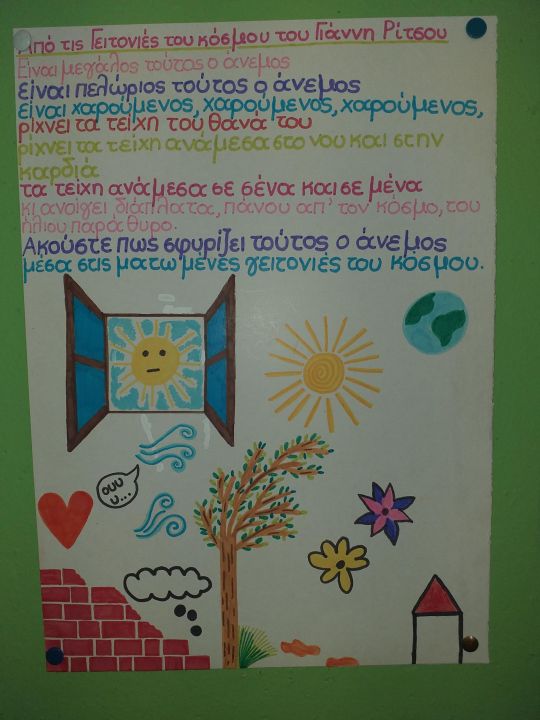 Από τις Γειτονιές του κόσμου του Γιάννη Ρίτσου
Είναι μεγάλος τούτος ο άνεμος
είναι πελώριος τούτος ο άνεμος
είναι χαρούμενος, χαρούμενος, χαρούμενος,
ρίχνει τα τείχη του θανά του
ρίχνει τα τείχη ανάμεσα στο νου και στην
καρδιά
τα τείχη ανάμεσα σε σένα και σε μένα
κι ανοίγει διάπλατα, πάνου απ' τον κόσμο, του
ήλιου παράθυρο.
Ακούστε πως σφυρίζει τούτος ο άνεμος
μέσα στις ματωμένες γειτονιές του κόσμου.
ουυ
υ...